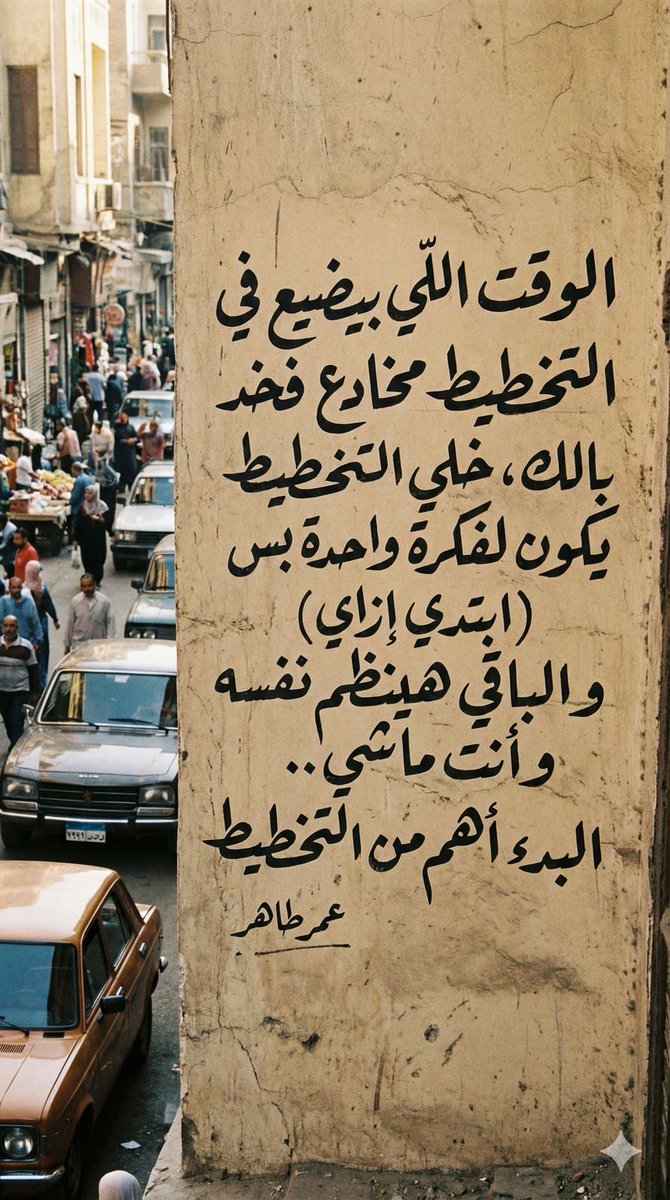 الوقت اللّي بيضيع في
التخطيط مخادع فخد
بالك، خلي التخطيط
يكون لفكرة واحدة بس
(ابتدي إزاي)
والباقي هينظم نفسه
وأنت ماشي..
البدء أهم من التخطيط
عمر طاهر